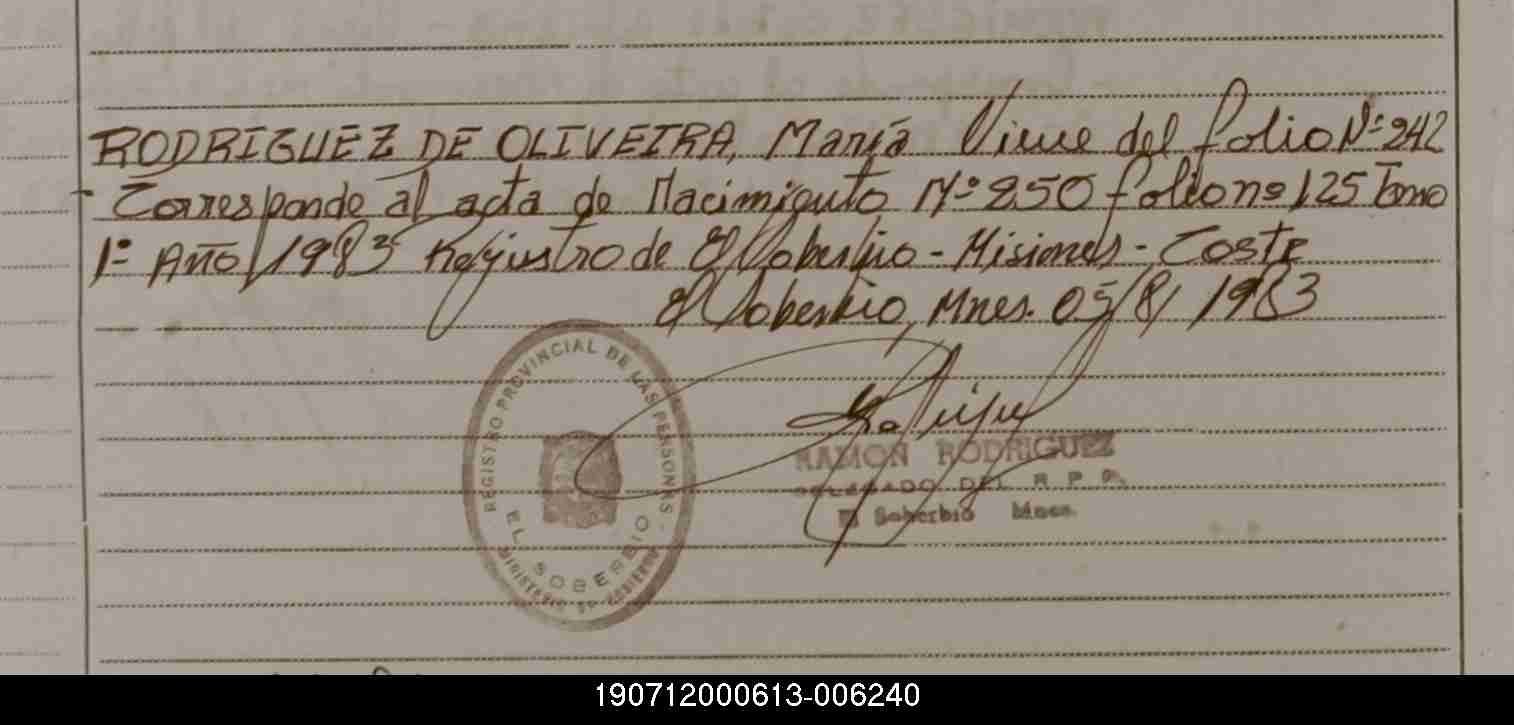 RODRIGUEZ DE OLIVEIRA, María Viene del folio Nº 242
- Corresponde al acta de Nacimiento Nº 250 folio nº 125 Tomo
1º Año 1983 Registro de El Soberbio - Misiones - Coste
El Soberbio, Mnes. 05/8/1983
REGISTRO PROVINCIAL DE LAS PERSONAS -
EL SOBERBIO
MINISTERIO DE GOBIERNO
RAMON RODRIGUEZ
DELEGADO DEL R P P.
El Soberbio Mnes.
190712000613-006240